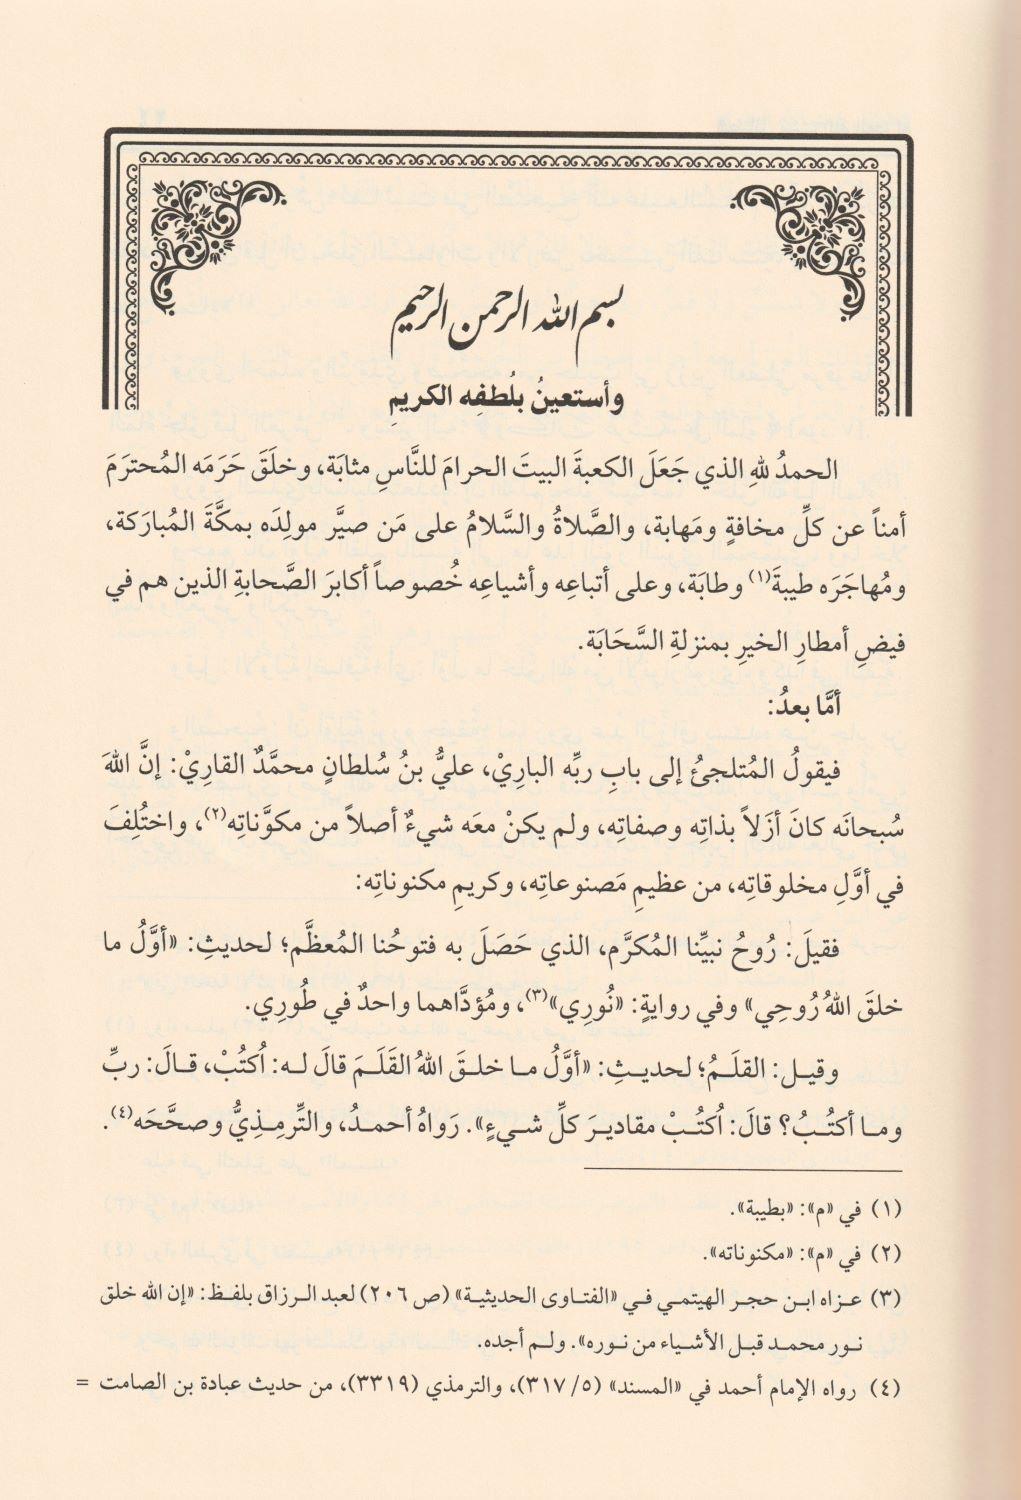 بسم الله الرحمن الرحيم
وأستعينُ بلُطفِه الكريمِ
الحمدُ للهِ الذي جَعَلَ الكعبةَ البيتَ الحرامَ للنَّاسِ مثابَة، وخلَقَ حَرَمَه المُحترَمَ
أمناً عن كلِّ مخافةٍ ومَهابة، والصَّلاةُ والسَّلامُ على مَن صيَّر مولِدَه بمكَّةَ المُبارَكة،
ومُهاجَرَه طيبةَ(١) وطابَة، وعلى أتباعِه وأشياعِه خُصوصاً أكابرَ الصَّحابةِ الذين هم في
فيضِ أمطارِ الخيرِ بمنزلةِ السَّحَابَة.
أمَّا بعدُ:
فيقولُ المُتلجئُ إلى بابِ ربِّه الباريْ، عليُّ بنُ سُلطانٍ محمَّدٌ القاريْ: إنَّ اللهَ
سُبحانَه كانَ أزَلاً بذاتِه وصفاتِه، ولم يكنْ معَه شيءٌ أصلاً من مكوَّناتِه(٢)، واختُلِفَ
في أوَّلِ مخلوقاتِه، من عظيمِ مَصنوعاتِه، وكريمِ مكنوناتِه:
فقيلَ: رُوحُ نبيِّنا المُكرَّم، الذي حَصَلَ به فتوحُنا المُعظَّم؛ لحديثِ: «أوَّلُ ما
خلقَ اللهُ رُوحِي» وفي روايةٍ: «نُورِي»(٣)، ومُؤدَّاهما واحدٌ في طُورِي.
وقيل: القلَمُ؛ لحديثِ: «أوَّلُ ما خلقَ اللهُ القَلَمَ قالَ له: اُكتُبْ، قالَ: ربِّ
وما أكتُبُ؟ قالَ: اُكتُبْ مقاديرَ كلِّ شيءٍ». رَواهُ أحمدُ، والتِّرمِذِيُّ وصحَّحَه(٤).
(١) في «م»: «بطيبة».
(٢) في «م»: «مكنوناته».
(٣) عزاه ابن حجر الهيتمي في «الفتاوى الحديثية» (ص ٢٠٦) لعبد الرزاق بلفظ: «إن الله خلق
نور محمد قبل الأشياء من نوره». ولم أجده.
(٤) رواه الإمام أحمد في «المسند» (٥/ ٣١٧)، والترمذي (٣٣١٩)، من حديث عبادة بن الصامت =